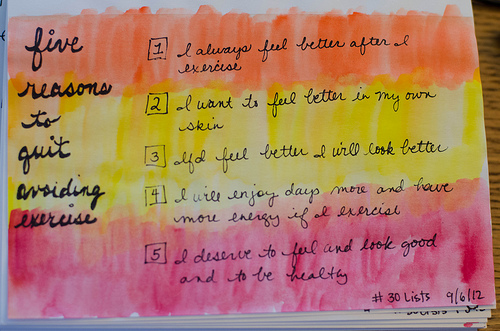 five
reasons
to
quit
avoiding
exercise
1 I always feel better after I
exercise
2 I want to feel better in my own
skin
3 If I feel better I will look better
4 I will enjoy days more and have
more energy if I exercise
5 I deserve to feel and look good
and to be healthy
# 30 Lists 9/6/12